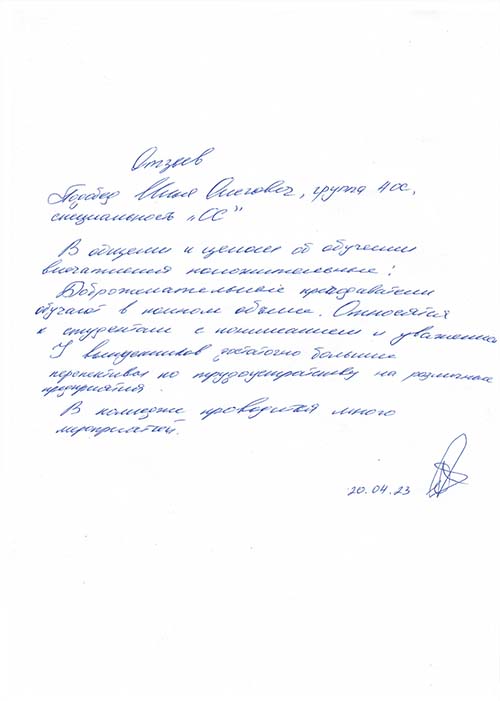 Отзыв
Илья Олегович, группа 4ос,
специальность „СС"
В общем и целом об обучении
впечатления положительные:
Доброжелательные преподаватели
обучают в полном объеме. Относятся
к студентам с пониманием и уважением
У выпускников достаточно большие
перспективы по трудоустройству на различные
предприятия.
В колледже проводится много
мероприятий.
20.04.23